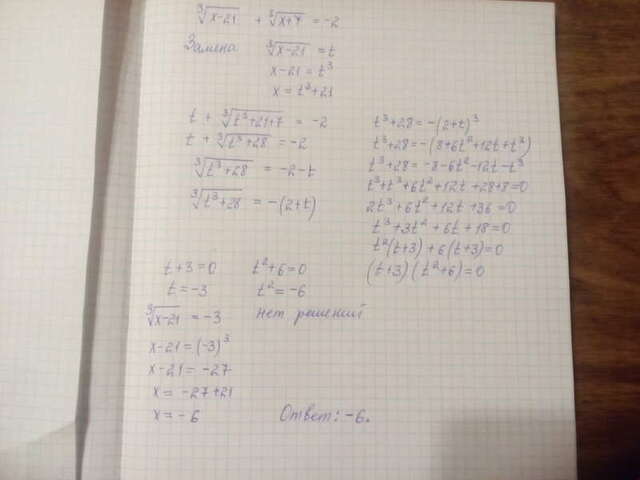 ∛(x-21) + ∛(x+7) = -2
Замена ∛(x-21) = t
x-21 = t³
x = t³+21
t + ∛(t³+21+7) = -2
t + ∛(t³+28) = -2
∛(t³+28) = -2-t
∛(t³+28) = -(2+t)
t³+28 = -(2+t)³
t³+28 = -(8+6t²+12t+t³)
t³+28 = -8-6t²-12t-t³
t³+t³+6t²+12t+28+8=0
2t³+6t²+12t+36=0
t³+3t²+6t+18=0
t²(t+3)+6(t+3)=0
(t+3)(t²+6)=0
t+3=0 t²+6=0
t=-3 t²=-6
∛(x-21) = -3 нет решений
x-21 = (-3)³
x-21 = -27
x = -27+21
x = -6 Ответ: -6.